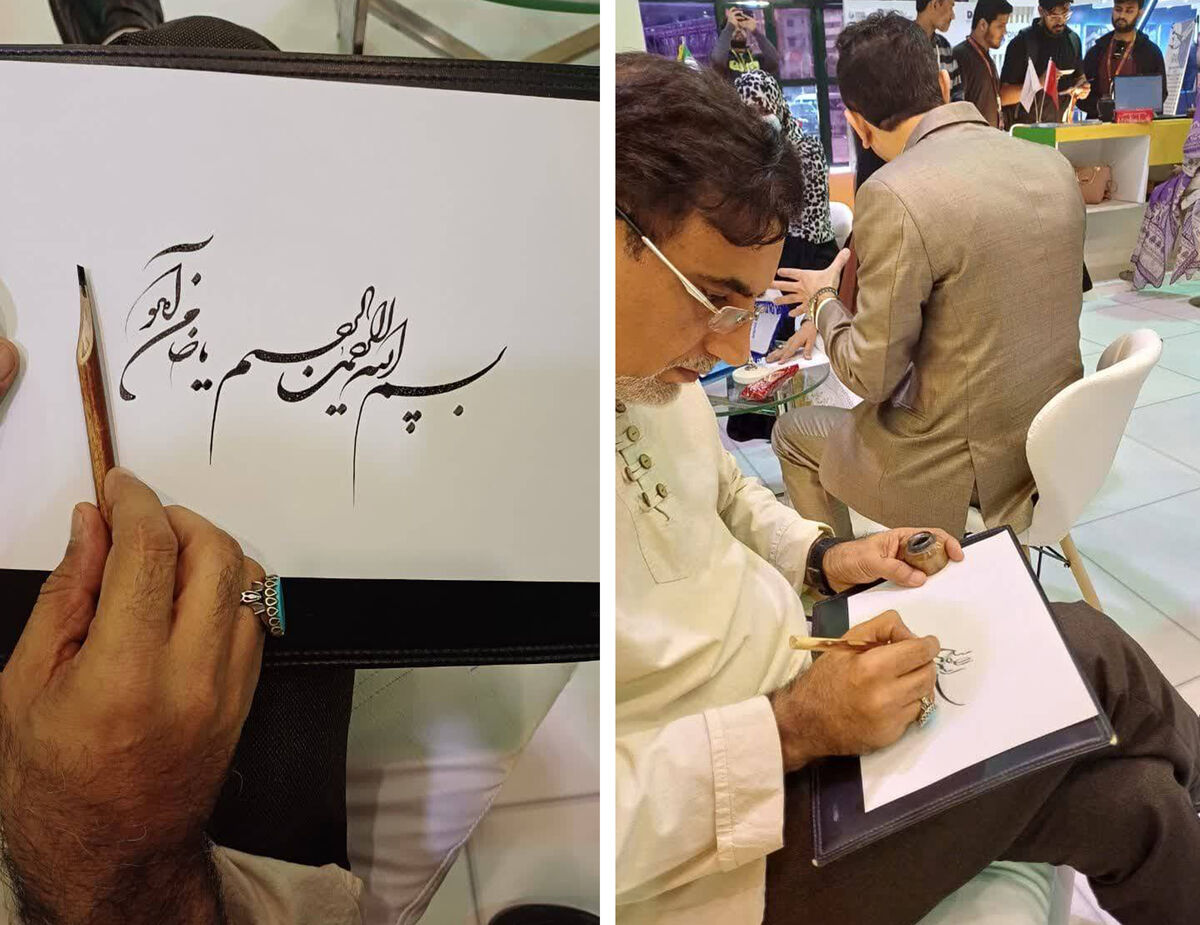 بسم الله الرحمن الرحیم
یا ضامن آهو